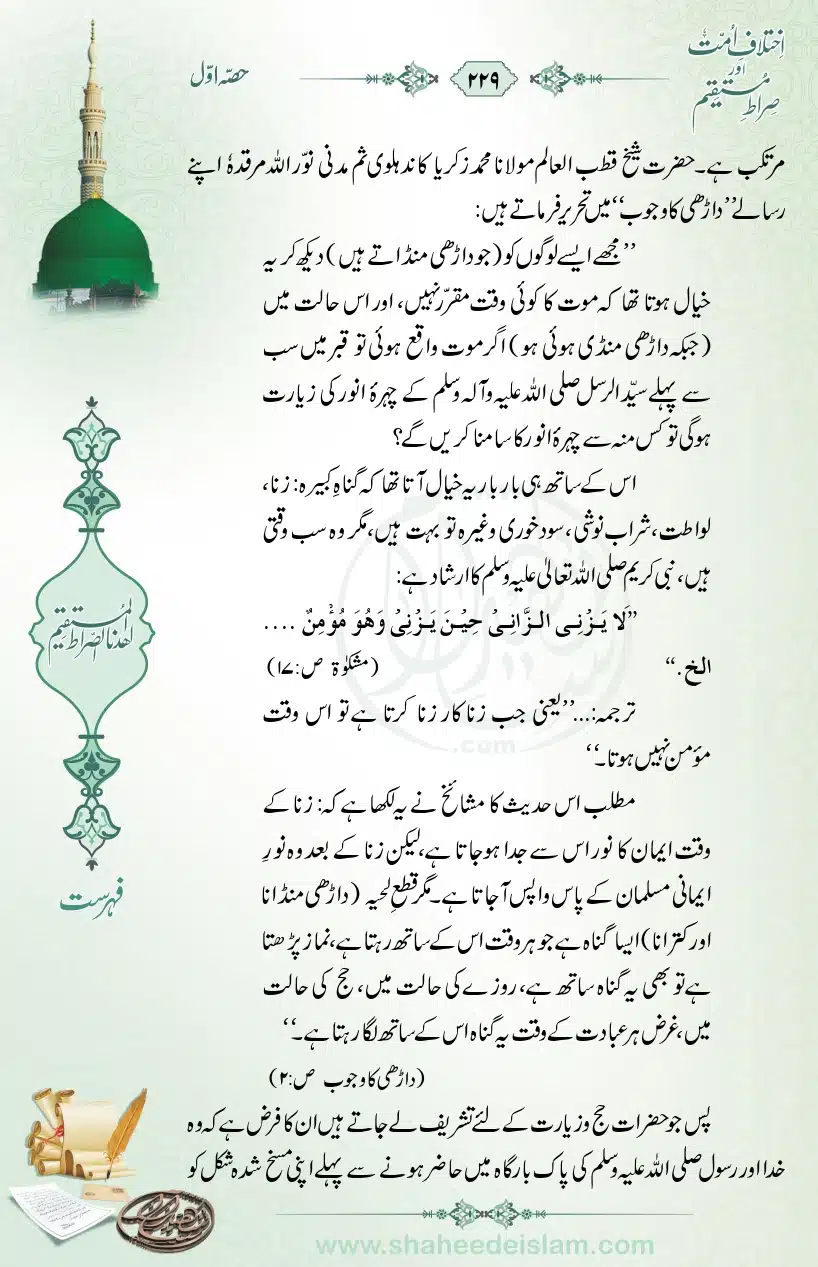 اِختلافِ اُمّت
اور
صِراطِ مُستقیم
۲۲۹
حصّہ اوّل
مرتکب ہے۔ حضرت شیخ قطب العالم مولانا محمد زکریا کاندہلوی ثم مدنی نوّر اللہ مرقدہٗ اپنے
رسالے ’’داڑھی کا وجوب‘‘ میں تحریر فرماتے ہیں:
’’مجھے ایسے لوگوں کو (جو داڑھی منڈاتے ہیں) دیکھ کر یہ
خیال ہوتا تھا کہ موت کا کوئی وقت مقرّر نہیں، اور اس حالت میں
(جبکہ داڑھی منڈی ہوئی ہو) اگر موت واقع ہوئی تو قبر میں سب
سے پہلے سیّد الرسل صلی اللہ علیہ وآلہ وسلم کے چہرۂ انور کی زیارت
ہوگی تو کس منہ سے چہرۂ انور کا سامنا کریں گے؟
اس کے ساتھ ہی بار بار یہ خیال آتا تھا کہ گناہِ کبیرہ: زنا،
لواطت، شراب نوشی، سود خوری وغیرہ تو بہت ہیں، مگر وہ سب وقتی
ہیں، نبی کریم صلی اللہ تعالیٰ علیہ وسلم کا ارشاد ہے:
’’لَا یَزْنِی الزَّانِیْ حِیْنَ یَزْنِیْ وَھُوَ مُؤْمِنٌ ....
الخ.‘‘ (مشکوٰۃ ص:۱۷)
ترجمہ:...’’یعنی جب زناکار زنا کرتا ہے تو اس وقت
مؤمن نہیں ہوتا۔‘‘
مطلب اس حدیث کا مشائخ نے یہ لکھا ہے کہ: زنا کے
وقت ایمان کا نور اس سے جدا ہوجاتا ہے، لیکن زنا کے بعد وہ نورِ
ایمانی مسلمان کے پاس واپس آجاتا ہے۔ مگر قطعِ لحیہ (داڑھی منڈانا
اور کترانا) ایسا گناہ ہے جو ہر وقت اس کے ساتھ رہتا ہے، نماز پڑھتا
ہے تو بھی یہ گناہ ساتھ ہے، روزے کی حالت میں، حج کی حالت
میں، غرض ہر عبادت کے وقت یہ گناہ اس کے ساتھ لگا رہتا ہے۔‘‘
(داڑھی کا وجوب ص:۲)
پس جو حضرات حج و زیارت کے لئے تشریف لے جاتے ہیں ان کا فرض ہے کہ وہ
خدا اور رسول صلی اللہ علیہ وسلم کی پاک بارگاہ میں حاضر ہونے سے پہلے اپنی مسخ شدہ شکل کو
اھدنا الصّراط المُستقیم
فہرست
.com
www.shaheedeislam.com